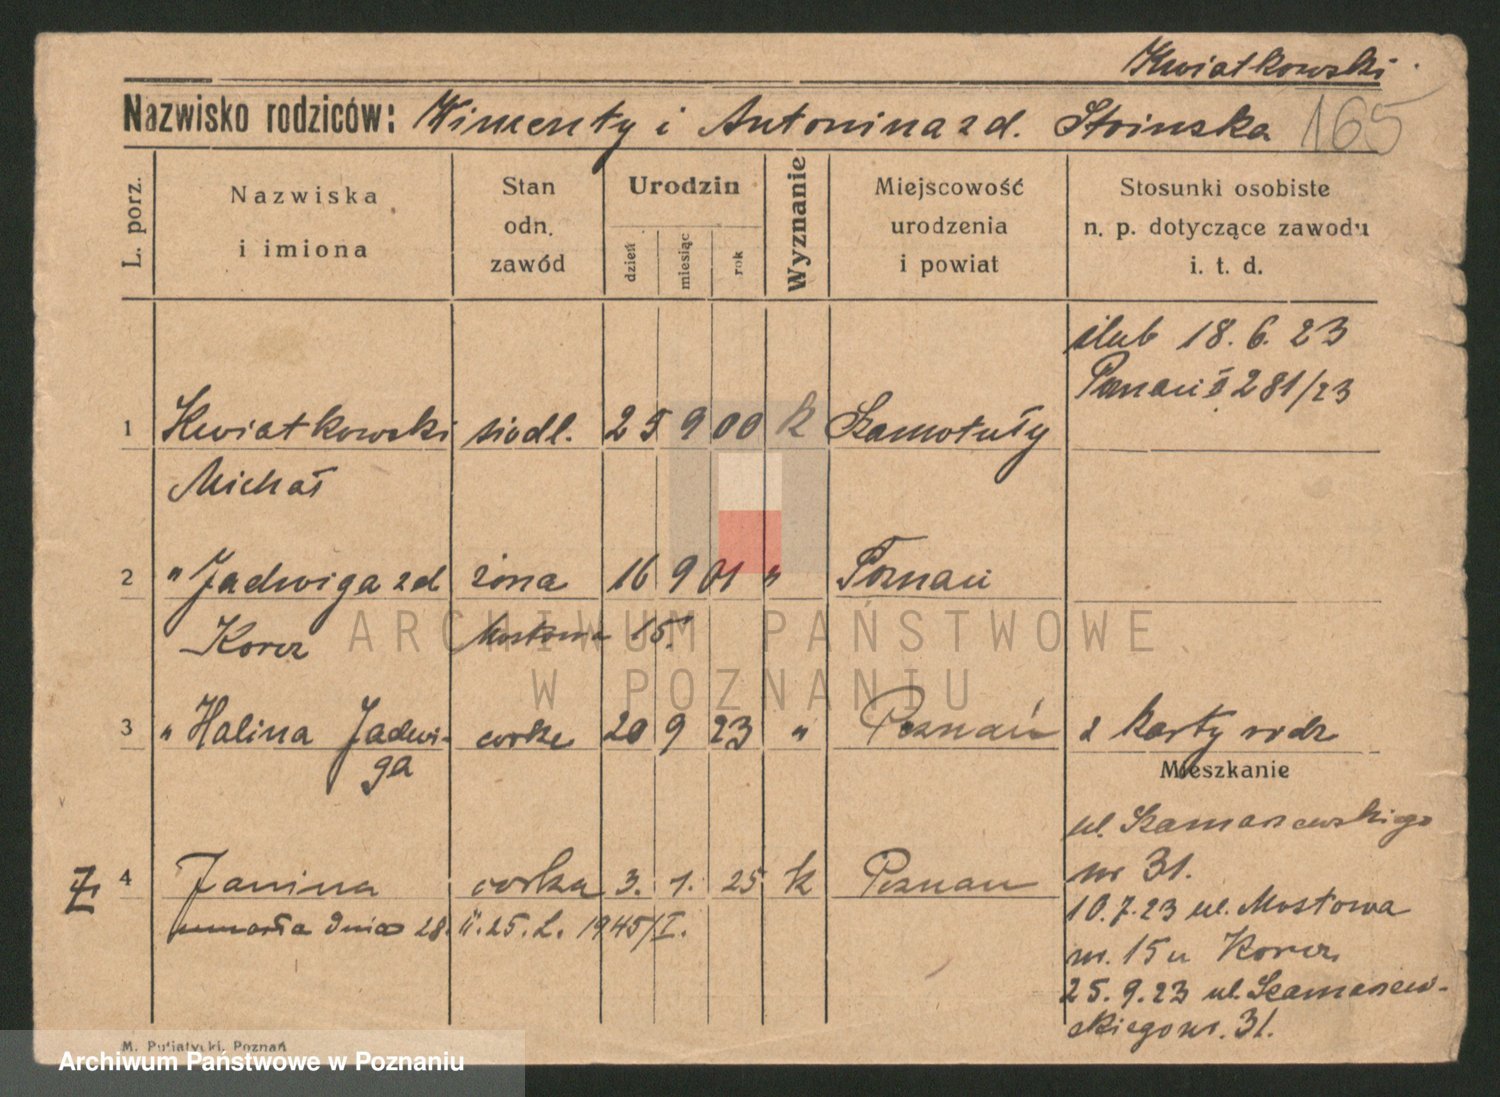 Kwiatkowski
Nazwisko rodziców: Wincenty i Antonina zd. Stoinska 165
L. porz.
Nazwiska
i imiona
Stan
odn.
zawód
Urodzin
dzień
miesiąc
rok
Wyznanie
Miejscowość
urodzenia
i powiat
Stosunki osobiste
n. p. dotyczące zawodu
i. t. d.
ślub 18. 6. 23
Poznań 281/23
1 Kwiatkowski siodl. 25 9 00 k Szamotuły
Michał
2 " Jadwiga zd żona 16 9 01 " Poznań
Korcz Mostowa 15.
3 " Halina Jadwi- córka 20 9 23 " Poznań 2 karty rodz
ga
Mieszkanie
ul. Szamarzewskiego
nr 31.
4 Janina córka 3. 1. 25 k Poznań
Ż
10.7.23 ul. Mostowa
umarła dnia 28. II. 25. L. 1945/I.
nr. 15 u Korcz
25. 9. 23 ul. Szamarzew-
skiego nr. 31.
M. Putiatycki, Poznań
ARCHIWUM PAŃSTWOWE
W POZNANIU
Archiwum Państwowe w Poznaniu